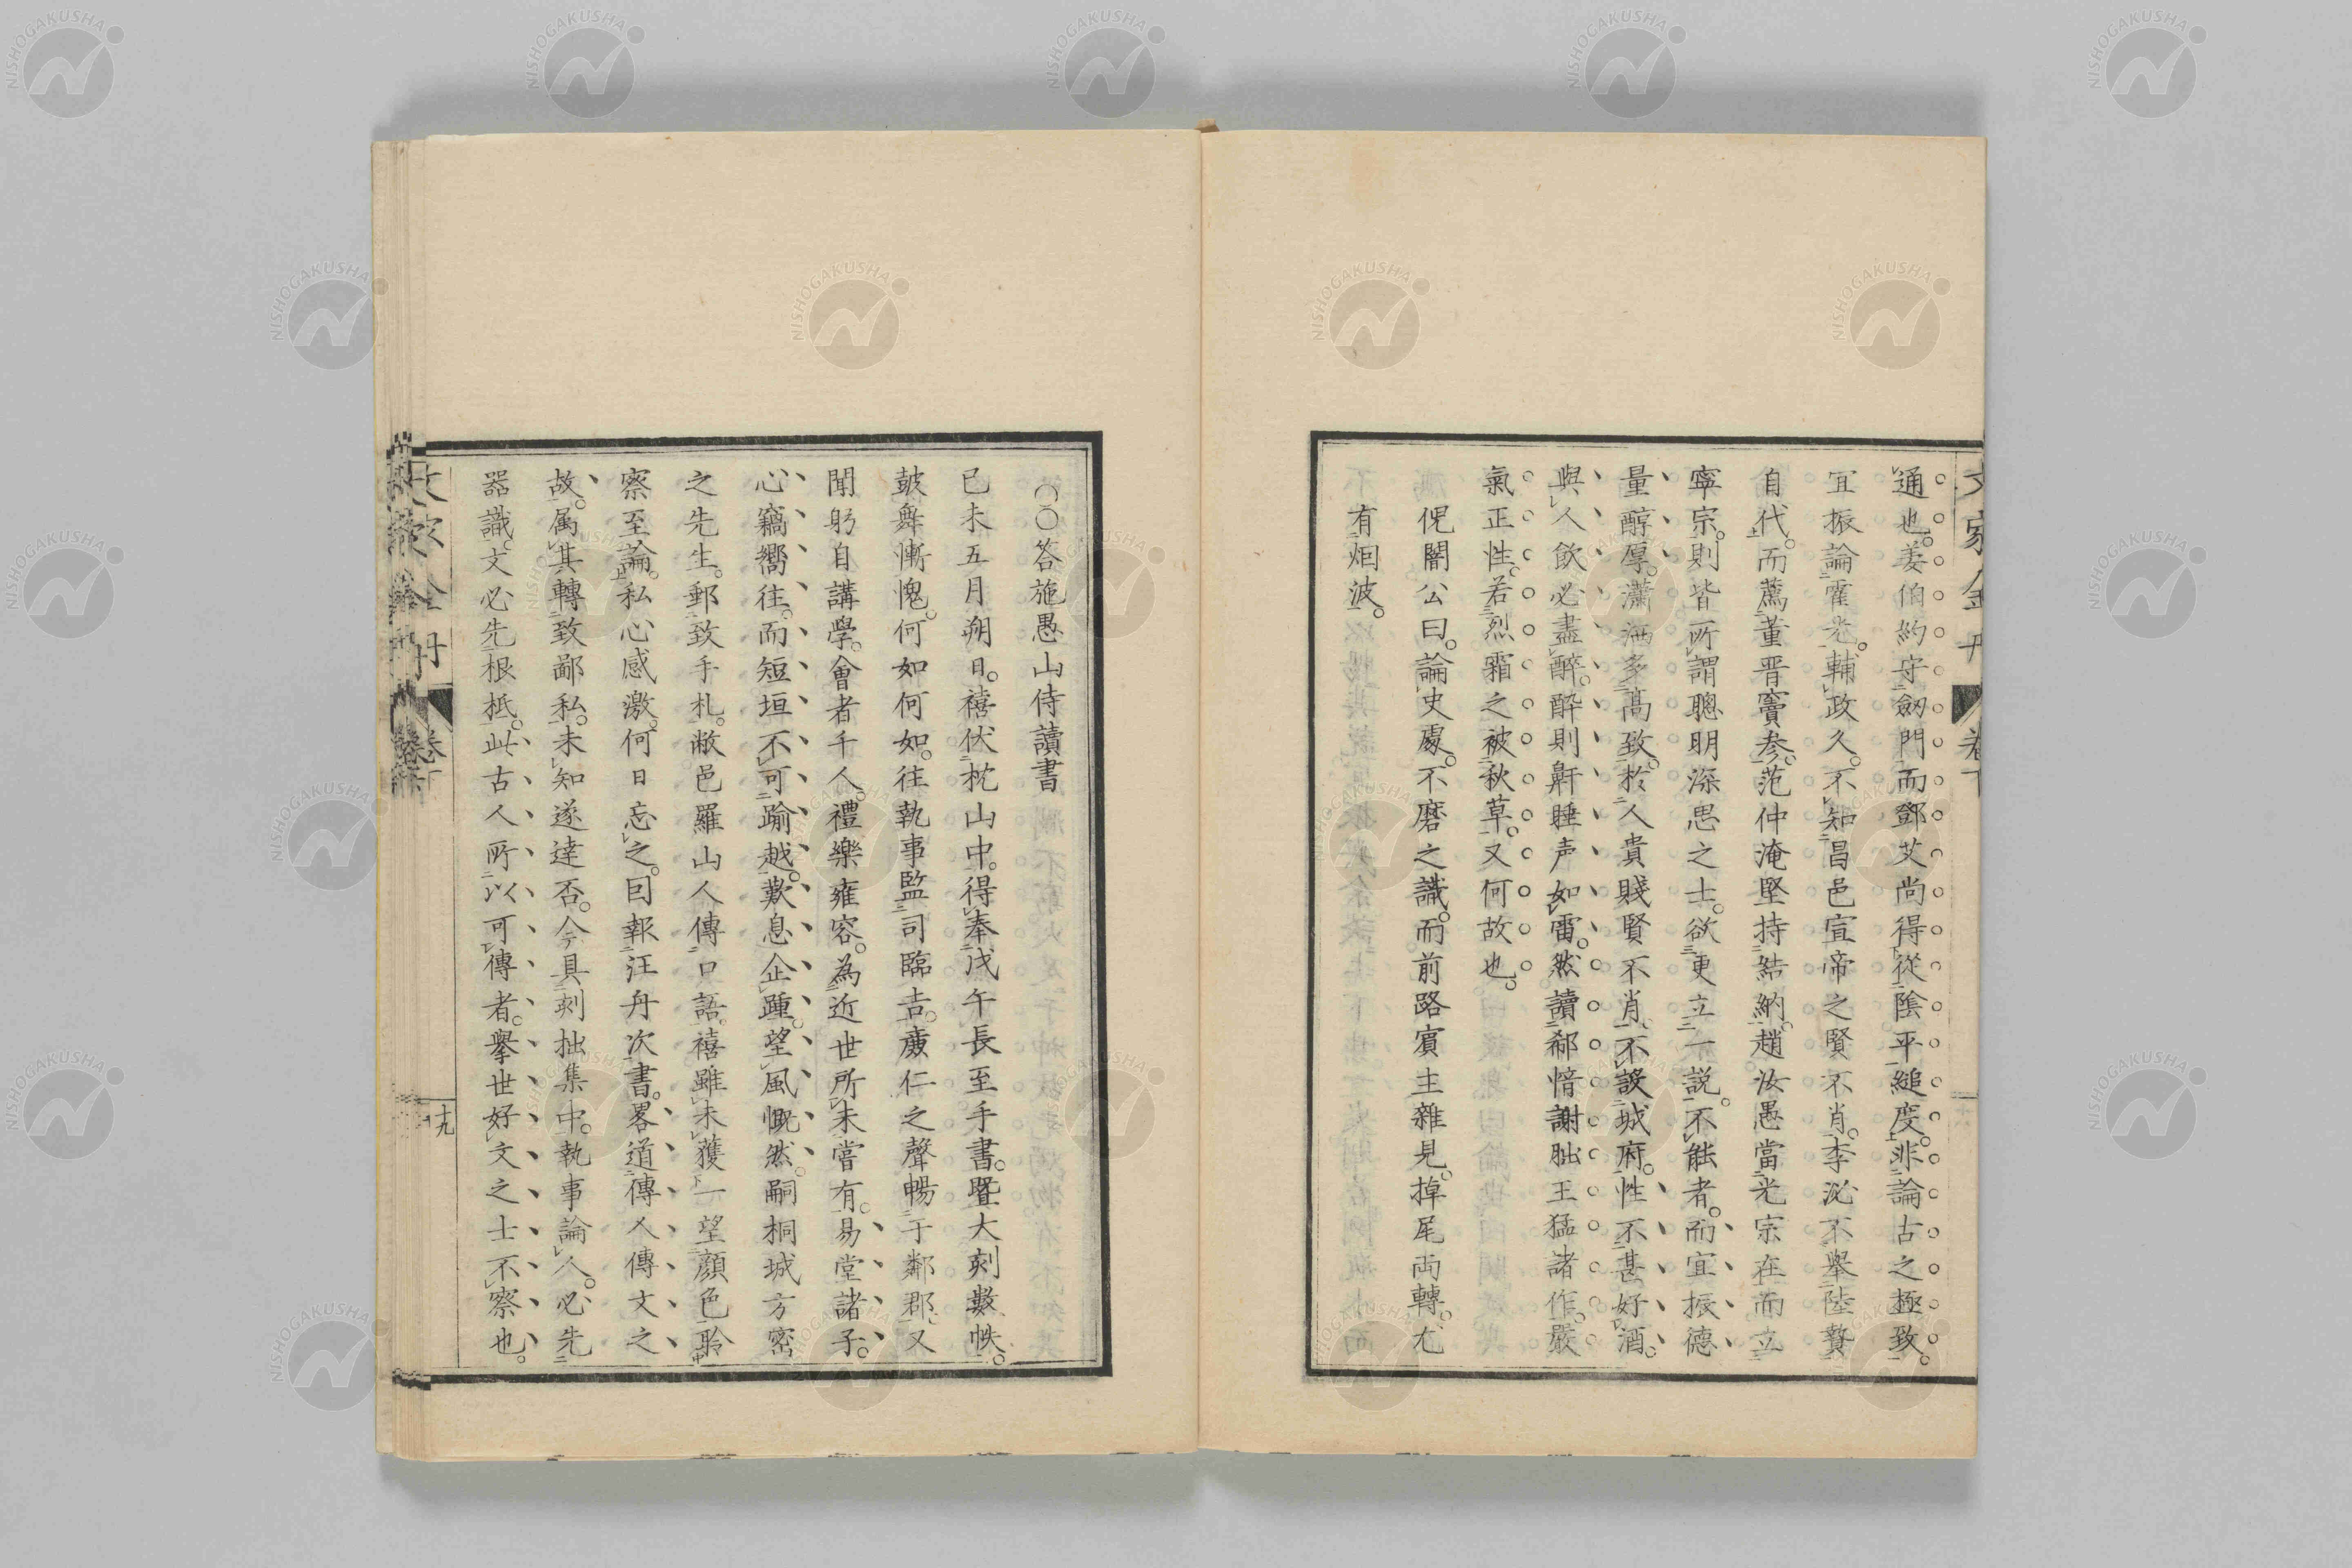 通也。姜伯約守劔門而鄧艾尚得從陰平縋度。非論古之極致。
宜振論霍光。輔政久。不知昌邑宣帝之賢不肖。李泌不舉陸贄
自代。而薦董晋竇参。范仲淹堅持結納。趙汝愚當光宗在而立
寧宗。則皆所謂聰明深思之士。欲更立一説。不能者。而宜振德
量醇厚。瀟洒多高致。於人貴賤賢不肖。不設城府。性不甚好酒。
與人飲必盡醉。醉則鼾睡声如雷。然讀郗愔謝朏王猛諸作。嚴
氣正性。若烈霜之被秋草。又何故也。
倪闇公曰。論史處。不磨之識。而前路賓主雜見。掉尾両轉。尤
有烟波。
文家金丹
卷下
〇〇答施愚山侍讀書
已未五月朔日。禧伏枕山中。得奉戊午長至手書。曁大刻數帙。
鼓舞慚愧。何如何如。往執事監司臨吉。廉仁之聲暢于鄰郡、又
聞躬自講學。會者千人。禮樂雍容。為近世所未嘗有。易堂諸子。
心竊嚮往。而短垣不可踰越。歎息企踵。望風慨然。嗣桐城方密
之先生。郵致手札。敝邑羅山人傳口語。禧雖未獲一望顔色聆
察至論。私心感激。何日忘之。囘報汪舟次書。畧道傳人傳文之
故。属其轉致鄙私。未知遂達否。今具刻拙集中。執事論人。必先
器識。文必先根柢。此古人所以可傳者。舉世好文之士不察也。
文家金丹
卷下
十九
NISHOGAKUSHA